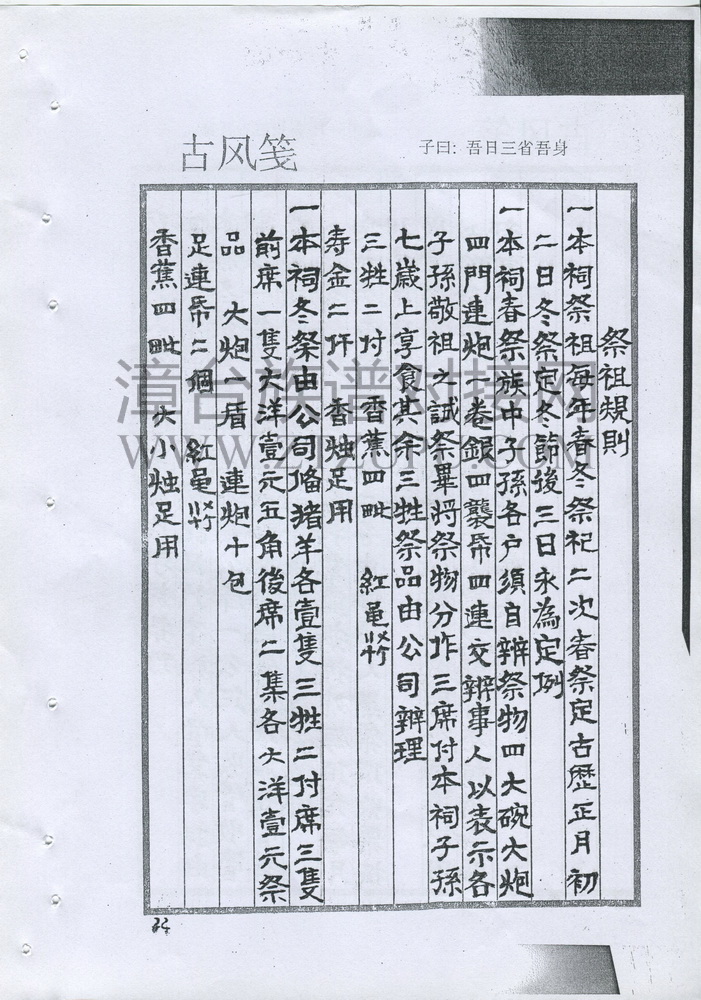 古风笺
子曰：吾日三省吾身
祭祖規則
一本祠祭祖每年春冬祭祀二次春祭定古歷正月初
二日冬祭定冬節後三日永為定例
一本祠春祭族中子孫各户須自辦祭物四大碗大炮
四門連炮一卷銀四襲帋四連交辦事人以表示各
子孫敬祖之誠祭畢將祭物分作三席付本祠子孫
七歲上享食其余三牲祭品由公司辦理
三牲二付 香蕉四 紅黾
寿金二仟 香烛足用
一本祠冬祭由公司俻猪羊各壹隻三牲二付席三隻
前席一隻大洋壹元五角後席二集各大洋壹元祭
品 火炮一盾 連炮十包
足連帋二個 紅黾
香蕉四 大小烛足用
漳台族谱对接网